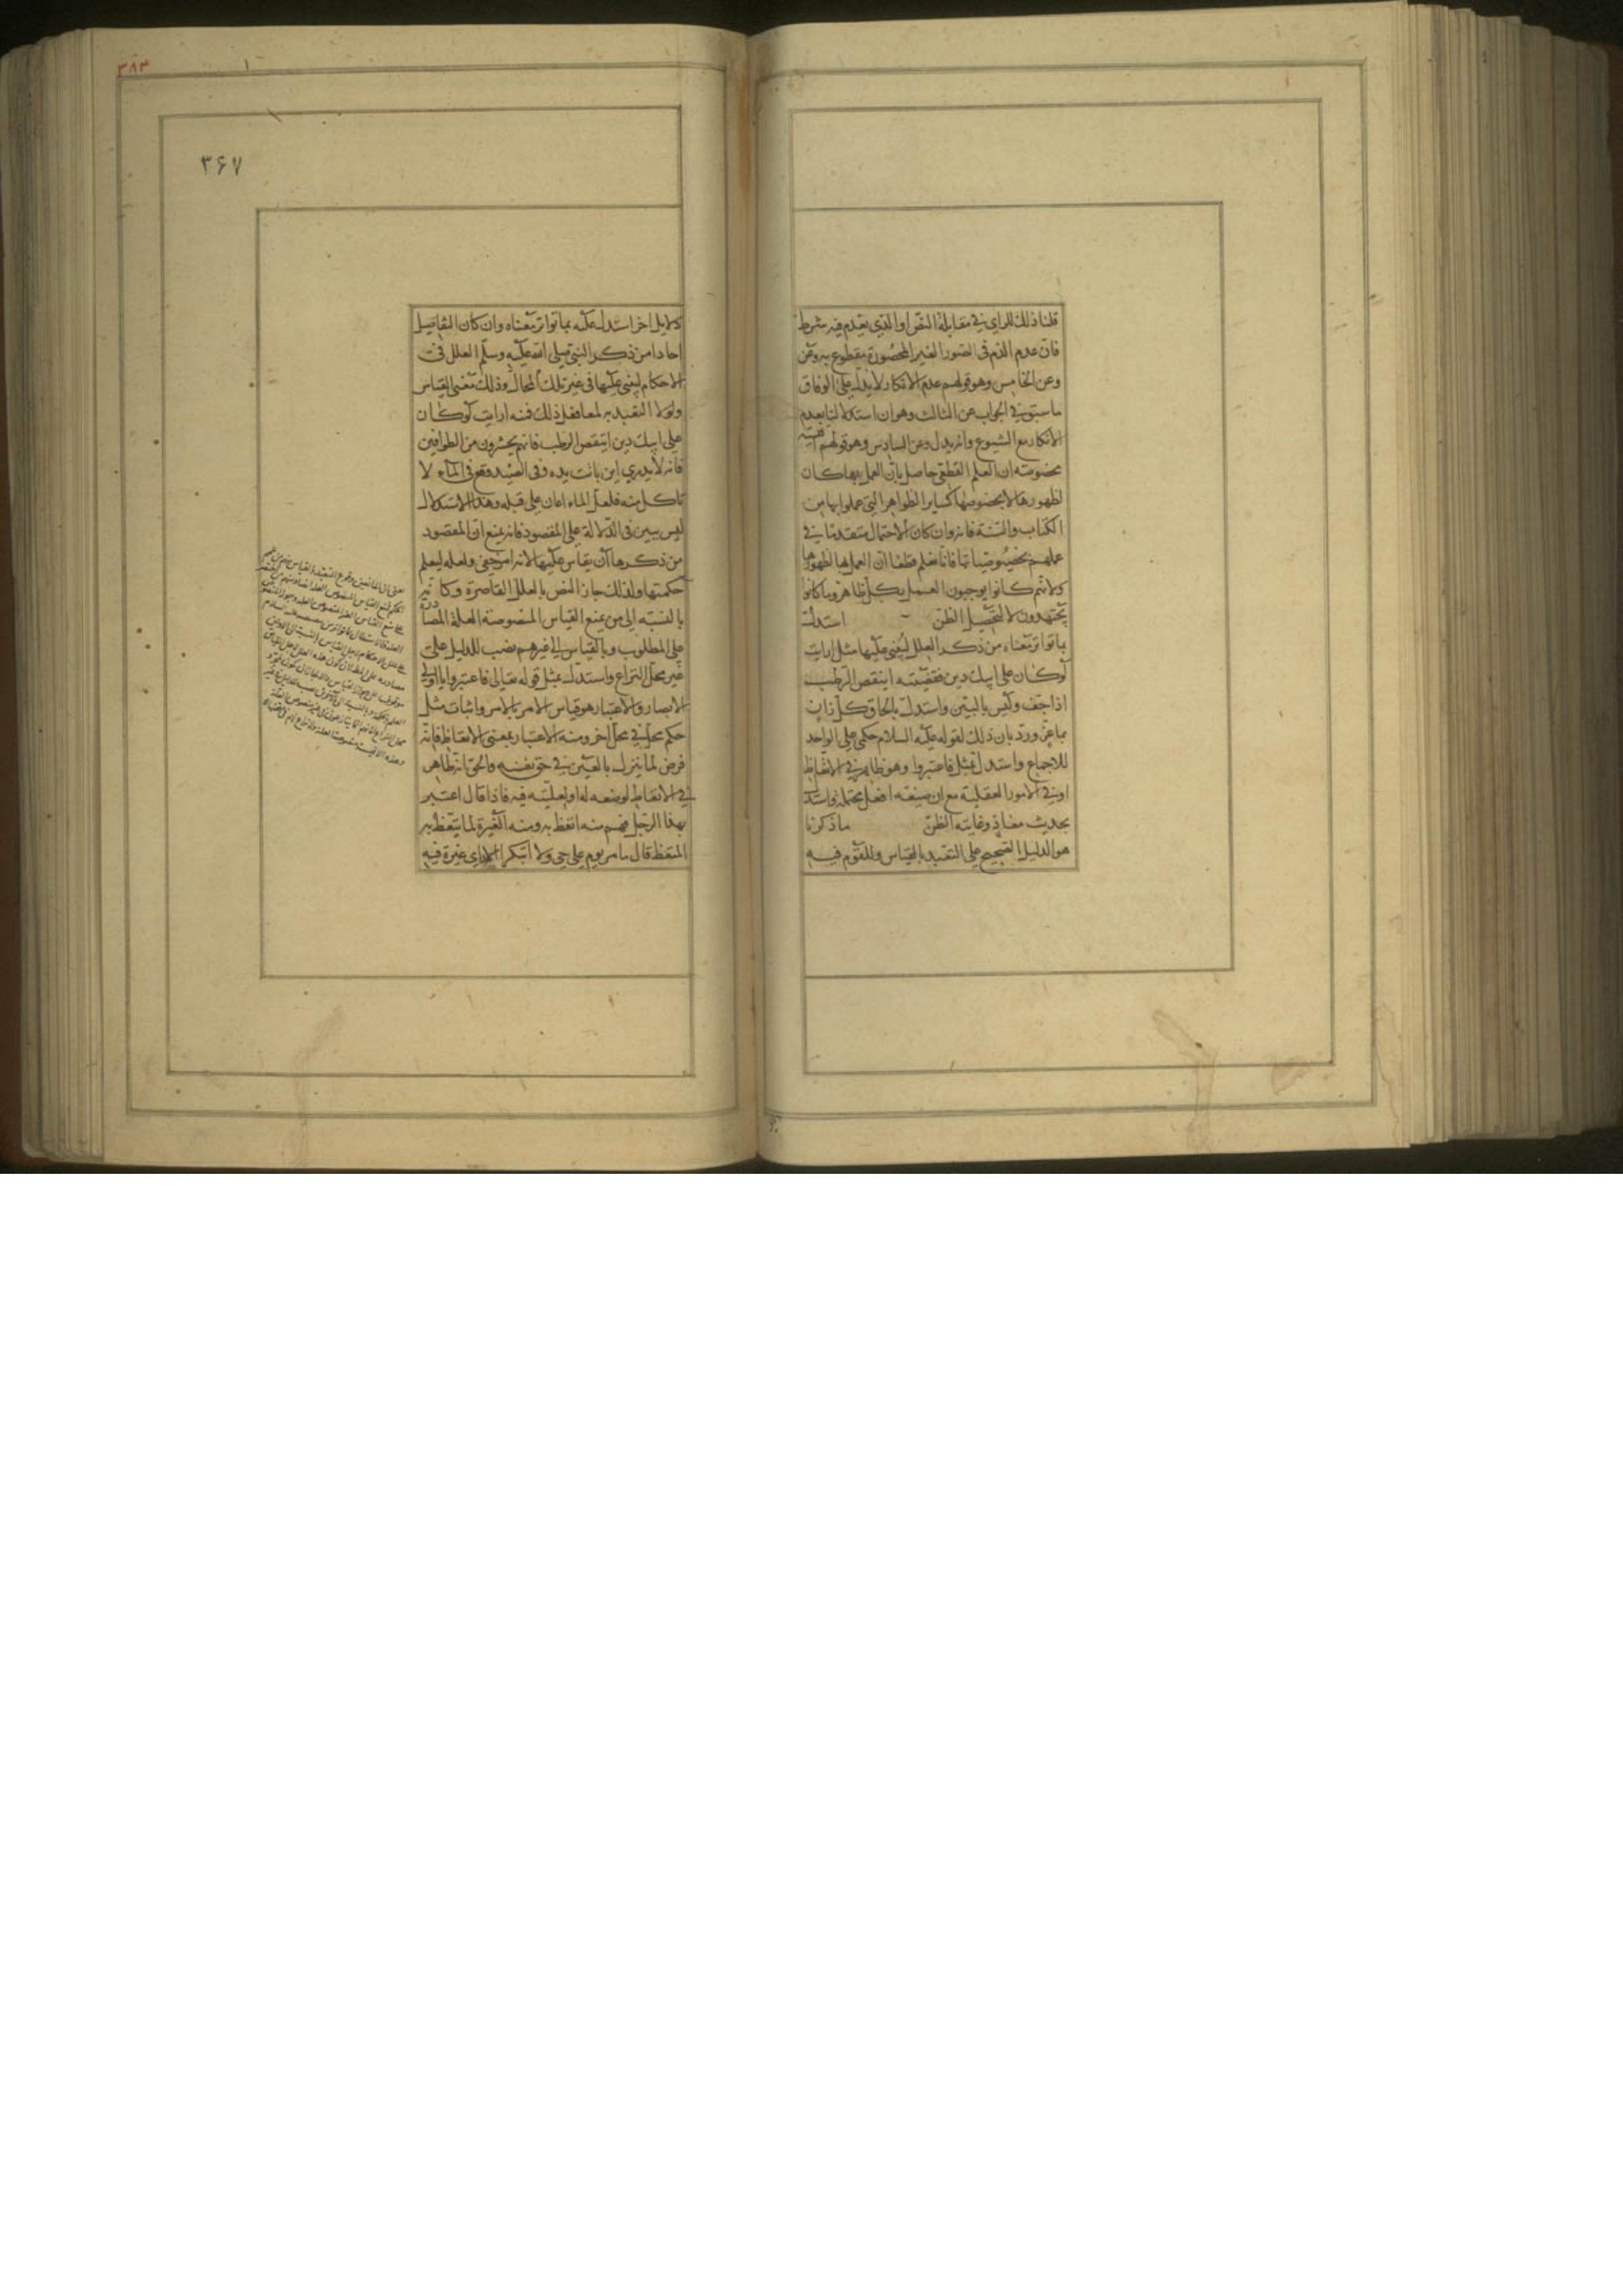 قلنا ذلك للراي في مقابلة النص او الذي يعدم فيه شرط
فان عدم الذم في الصور الغير المحصورة مقطوع به وعن
وعن الخامس وهو قولهم عدم الانكار لا يدل على الوفاق
ما ستوفي الجواب عن الثالث وهو ان استدلالنا بعدم
الانكار مع الشيوع وانه يدل وعن السادس وهو قولهم اقيسة
مخصوصة ان العلم القطعي حاصل بان العمل بها كان
لظهورها لا بخصوصها كساير الظواهر التي عملوا بها من
الكتاب والسنة فانه وان كان الاحتمال متقدما في
عملهم بخصوصياتها فانا نعلم قطعا ان العمل بها لظهورها
ولانهم كانوا يوجبون العمل بكل ظاهر وما كانوا
يجتهدون لا لتحصيل الظن استدل
بما تواتر معناه من ذكر العلل ليبنى عليها مثل ارايت
لو كان على ابيك دين فقضيته اينقص الرطب
اذا جف وليس بالبين واستدل بالحاق كل زان
بماعز ورد بان ذلك لقوله عليه السلام حكمي على الواحد
للاجماع واستدل بمثل فاعتبروا وهو ظاهر في الاتعاظ
او في الامور العقلية مع ان صيغة افعل محتملة واستدل
بحديث معاذ وغايته الظن ما ذكرنا
هو الدليل الصحيح على التعبد بالقياس وللقوم فيه
٣٨٣
١
٣۶٧
دلايل اخر استدل عليه بما تواتر معناه وان كان التفاصيل
احادا من ذكر النبي صلى الله عليه وسلم العلل في
الاحكام ليبنى عليها في غير تلك المحال وذلك معنى القياس
ولولا التعبد به لما فعل ذلك فمنه ارايت لو كان
على ابيك دين اينقص الرطب فانهم يحشرون من الطوافين
فانه لا يدري اين باتت يده وفي الصيد وقع في الماء لا
تاكل منه فلعل الماء اعان على قتله وهذا الاستدلال
ليس ببين في الدلالة على المقصود فانه يمنع ان المقصود
من ذكرها ان يقاس عليها لانه امر خفي ولعله ليعلم
حكمتها ولذلك جاز النص بالعلل القاصرة وكانه
بالنسبة الى من يمنع القياس المنصوصة العلة المصادرة
على المطلوب وبالقياس الى غيرهم نصب للدليل على
غير محل النزاع واستدل بمثل قوله تعالى فاعتبروا يا اولي
الابصار والاعتبار هو قياس الامر بالامر واثبات مثل
حكم محل في محل اخر ومنه الاعتبار بمعنى الاتعاظ فانه
فرض لما ينزل بالغير في حق نفسه والحق انه ظاهر
في الاتعاظ لوضعه له او لغلبته فيه فاذا قال اعتبر
بهذا الرجل فهم منه اتعظ به ومنه العبرة لما يتعظ به
المتعظ قال ما مر يوم على حي ولا ابتكرا الا راى عبرة فيه